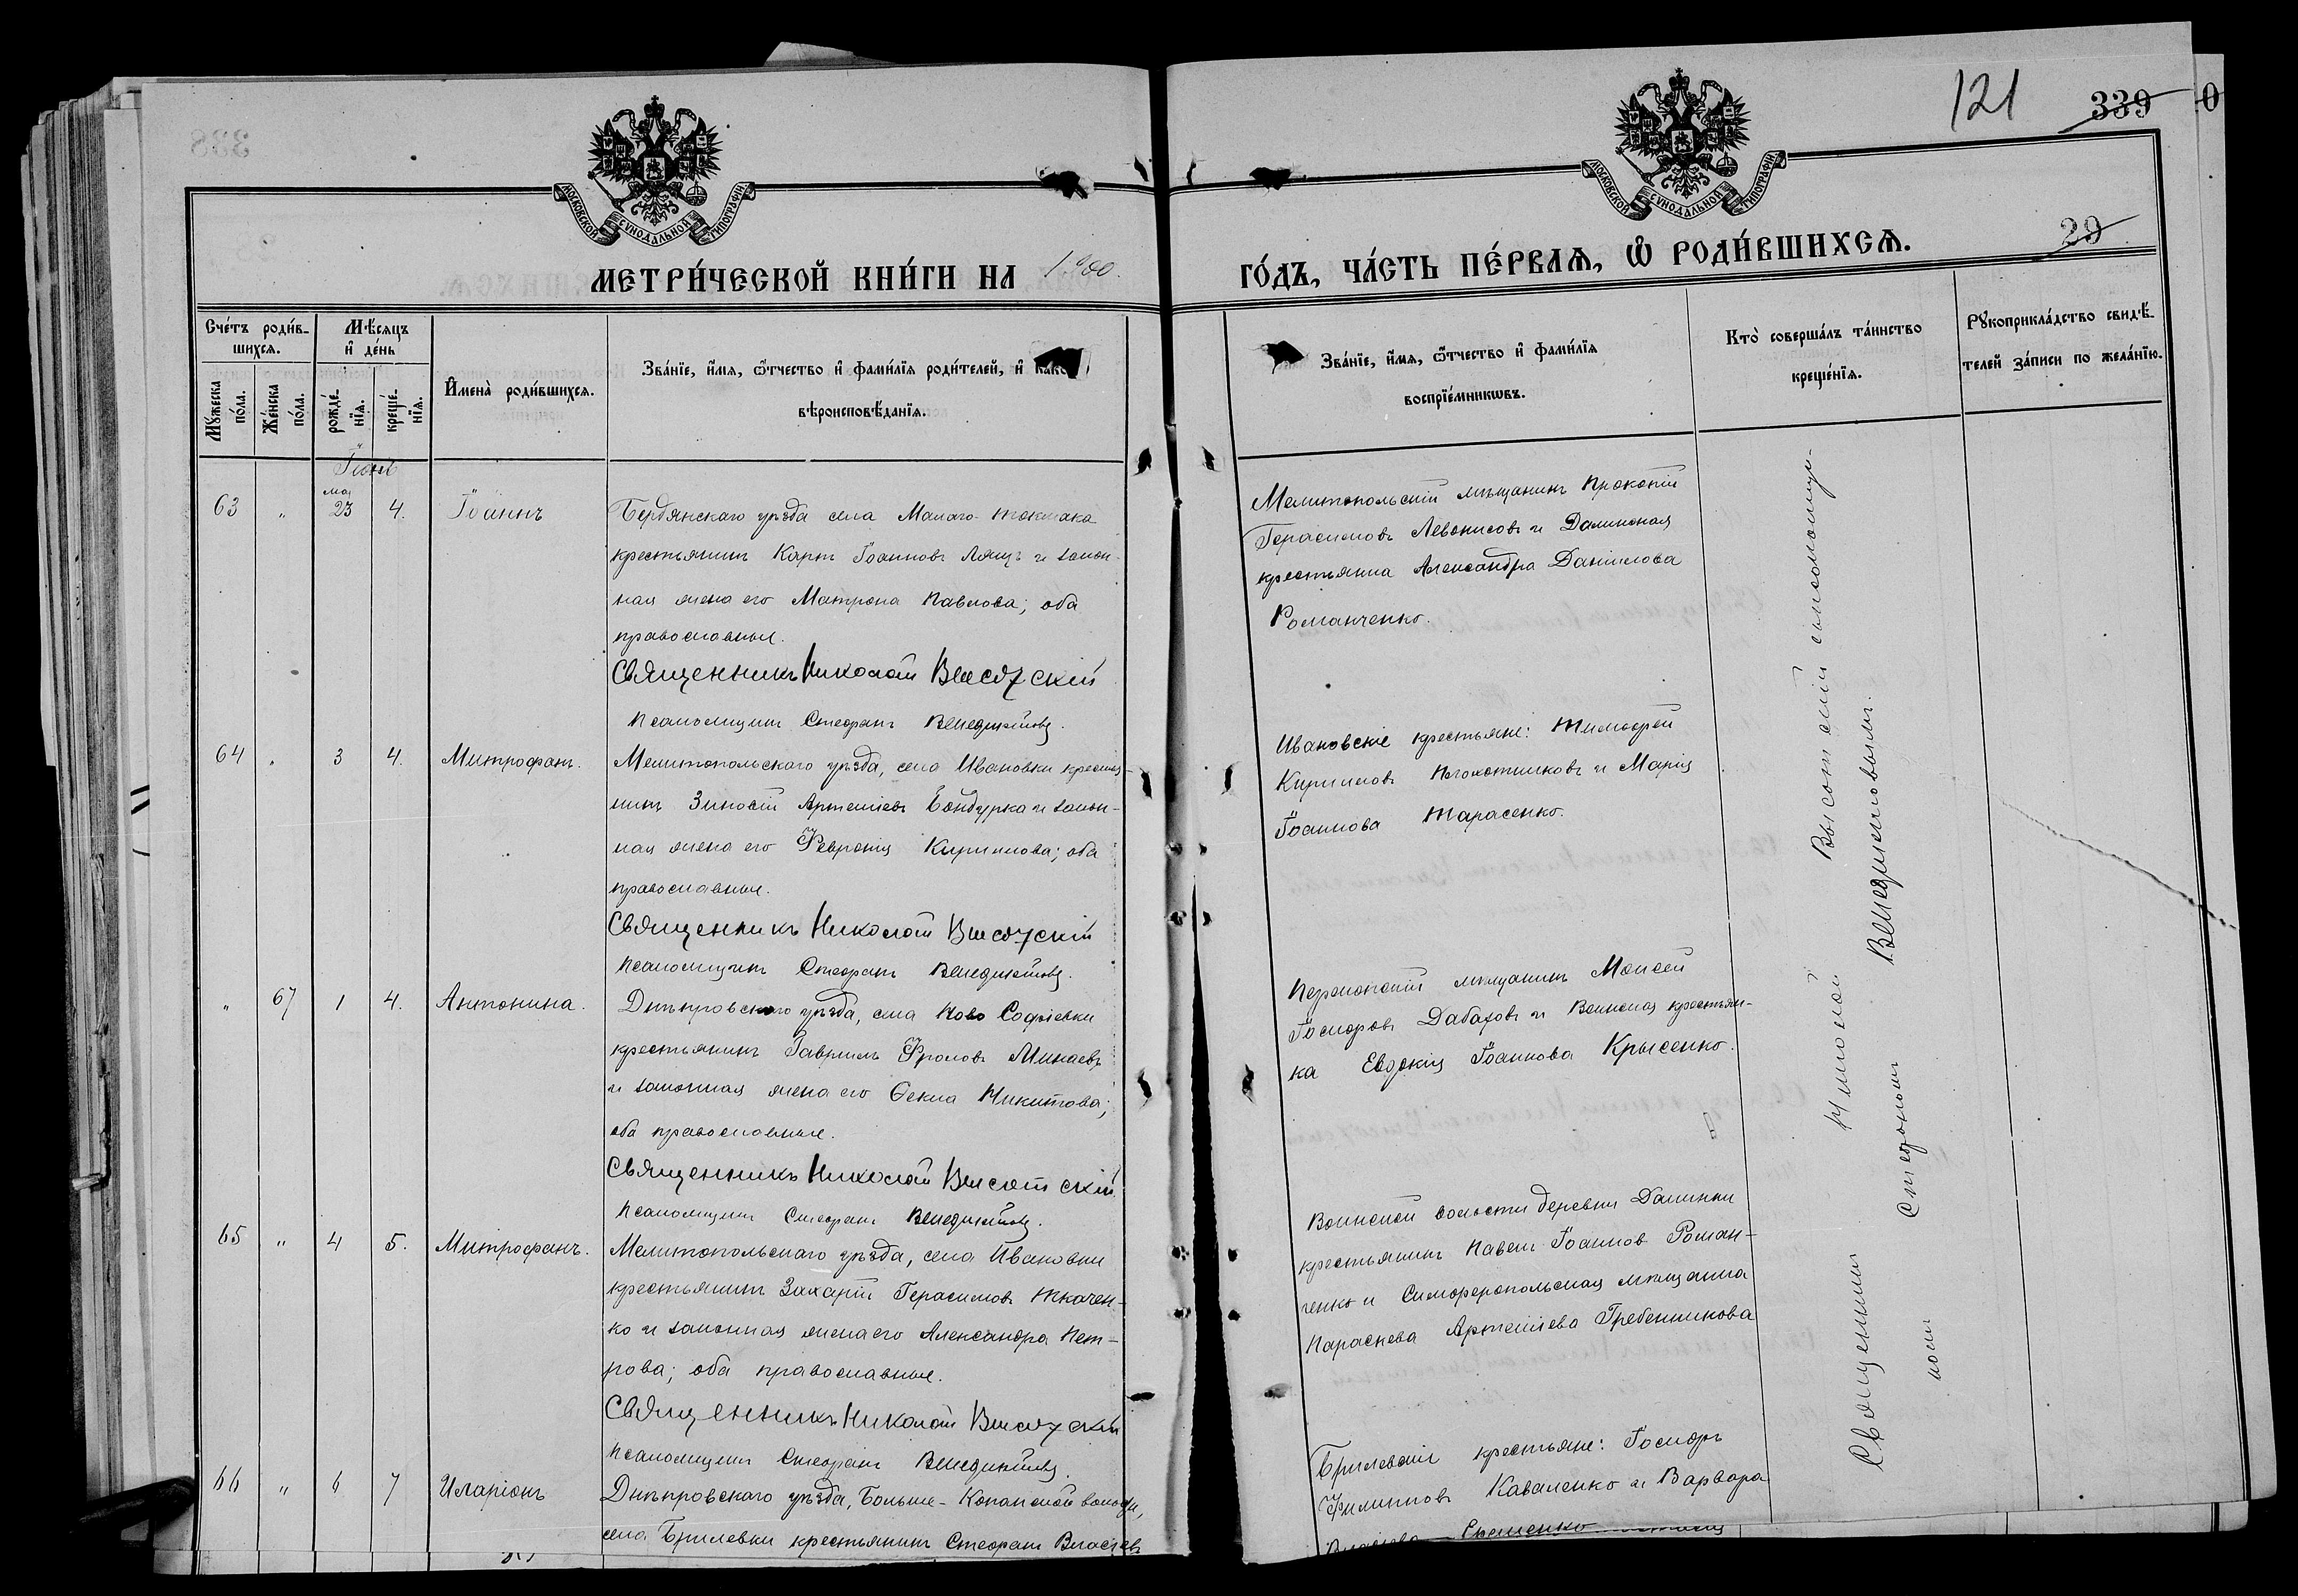 121
339
29
МОСКОВСКОЙ СѴНОДАЛЬНОЙ ТИПОГРАФІИ
МОСКОВСКОЙ СѴНОДАЛЬНОЙ ТИПОГРАФІИ
МЕТРИ́ЧЕСКОЙ КНИ́ГИ НА 1900.
ГО́ДЪ, ЧА́СТЬ ПЕ́РВАѦ, Ѡ҆ РОДИ́ВШИХСѦ.
Сче́тъ роди́в-
шихсѧ.
Мꙋ́жеска по́ла.
Же́нска по́ла.
Мѣ́сяцъ
и҆ де́нь
рожде́-нїѧ.
креще́-нїѧ.
И҆мена̀ роди́вшихсѧ.
Зва́нїе, и҆́мѧ, ѻ҆́тчество и҆ фами́лїѧ роди́телей, и҆ како
вѣроисповѣ́данїѧ.
Зва́нїе, и҆́мѧ, ѻ҆́тчество и҆ фами́лїѧ
воспрїе́мникѡвъ.
Кто̀ соверша́лъ та́инство
креще́нїѧ.
Рꙋкоприкла́дство свидѣ́-
телей за́писи по жела́нїю.
63 " мая 23 4. Іоаннъ
Бердянскаго уѣзда села Малаго-Токмака
крестьянинъ Карпъ Іоанновъ Лящъ и закон-
ная жена его Матрона Павлова; оба
православные.
Священникъ Николай Высотскій
Псаломщикъ Стефанъ Венедиктовъ.
Мелитопольскій мѣщанинъ Прокопій
Герасимовъ Левонисовъ и Далинская
крестьянка Александра Даніилова
Романченко.
64 " 3 4. Митрофанъ.
Мелитопольскаго уѣзда, села Ивановки крестья-
нинъ Зиновій Артеміевъ Бондурка и закон-
ная жена его Февронія Кириллова; оба
православные.
Священникъ Николай Высотскій
Псаломщикъ Стефанъ Венедиктовъ.
Ивановскіе крестьяне: Тимофей
Кирилловъ Плохотниковъ и Марія
Іоаннова Тарасенко.
" 67 1 4. Антонина.
Днѣпровскаго уѣзда, села Ново Софіевки
крестьянинъ Гавріилъ Фроловъ Минаевъ
и законная жена его Ѳекла Никитова;
оба православные.
Священникъ Николай Высотскій
Псаломщикъ Стефанъ Венедиктовъ.
Перекопскій мѣщанинъ Моисей
Іосифовъ Дабаховъ и Воинская крестьян-
ка Евдокія Іоаннова Крысенко.
65 " 4 5. Митрофанъ.
Мелитопольскаго уѣзда, села Ивановки
крестьянинъ Захарій Герасимовъ Ткачен-
ко и законная жена его Александра Пет-
рова; оба православные.
Священникъ Николай Высотскій
Псаломщикъ Стефанъ Венедиктовъ.
Воинской волости деревни Далинки
крестьянинъ Павелъ Іоанновъ Роман-
ченко и Симферопольская мѣщанка
Параскева Артеміева Гребенникова
66 " 6 7 Иларіонъ
Днѣпровскаго уѣзда, Больше-Копанской волости,
села Брилевки крестьянинъ Стефанъ Власіевъ
Брилевскіе крестьяне: Іосифъ
Филипповъ Коваленко и Варвара
Священникъ Николай Высотскій съ псаломщи-
комъ Стефаномъ Венедиктовымъ.